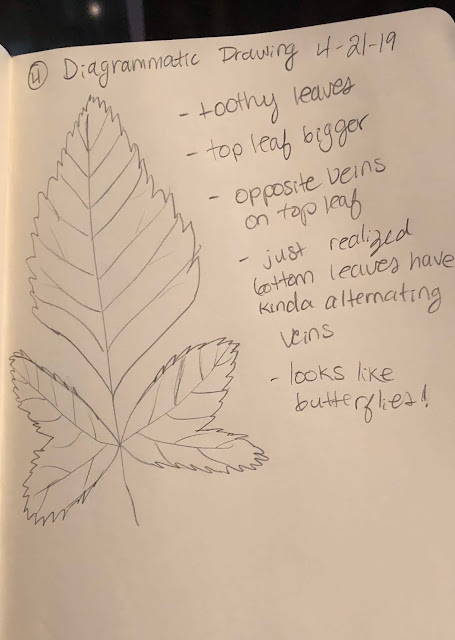 4 Diagrammatic Drawing 4-21-19
- toothy leaves
- top leaf bigger
- opposite veins
on top leaf
- just realized
bottom leaves have
kinda alternating
veins
- looks like
butterflies!